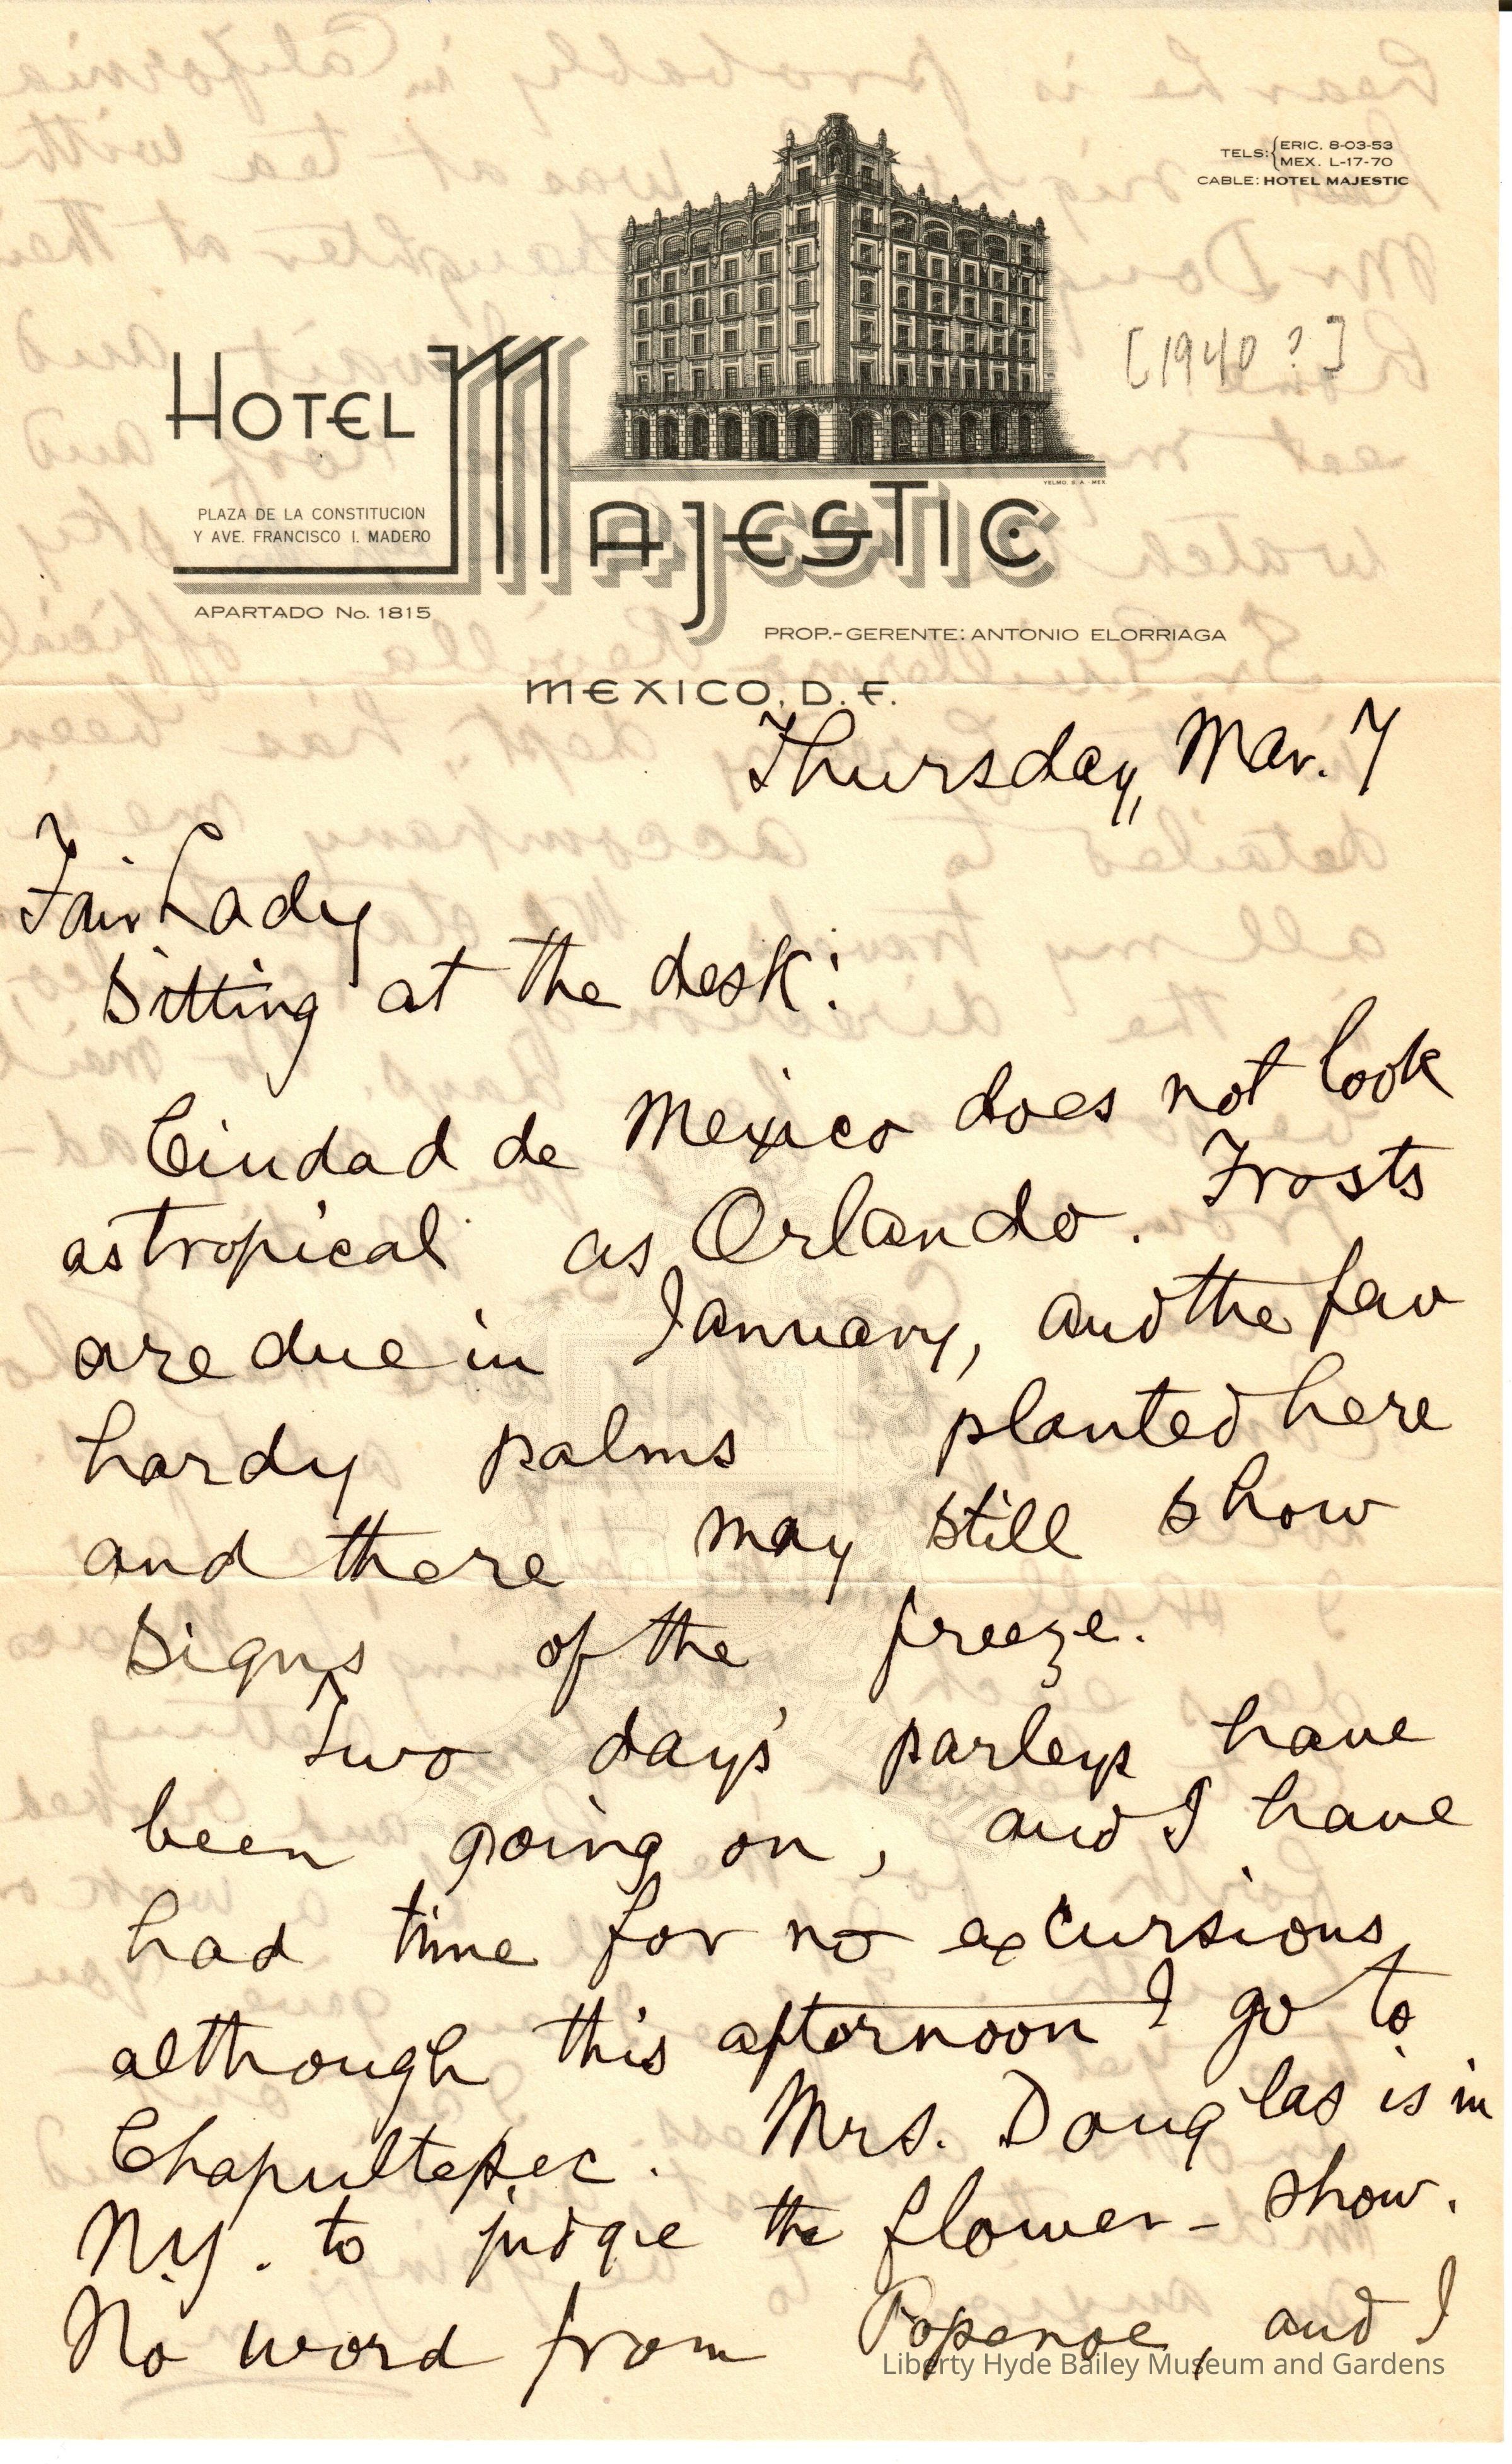 TELS: { ERIC. 8-03-53
MEX. L-17-70
CABLE: HOTEL MAJESTIC
[1940?]
HOTEL MAJESTIC
PLAZA DE LA CONSTITUCION
Y AVE. FRANCISCO I. MADERO
YELMO, S.A. MEX
APARTADO No. 1815
PROP.-GERENTE: ANTONIO ELORRIAGA
MEXICO, D. F.
Thursday, Mar. 7
Fair Lady
Sitting at the desk:
Ciudad de Mexico does not look
as tropical as Orlando. Frosts
are due in January, and the few
hardy palms planted here
and there may still show
signs of the freeze.
Two days' parleys have
been going on, and I have
had time for no excursions
although this afternoon I go to
Chapultepec. Mrs. Douglas is in
N.Y. to judge the flower-show.
No word from Popenoe, and I
Liberty Hyde Bailey Museum and Gardens